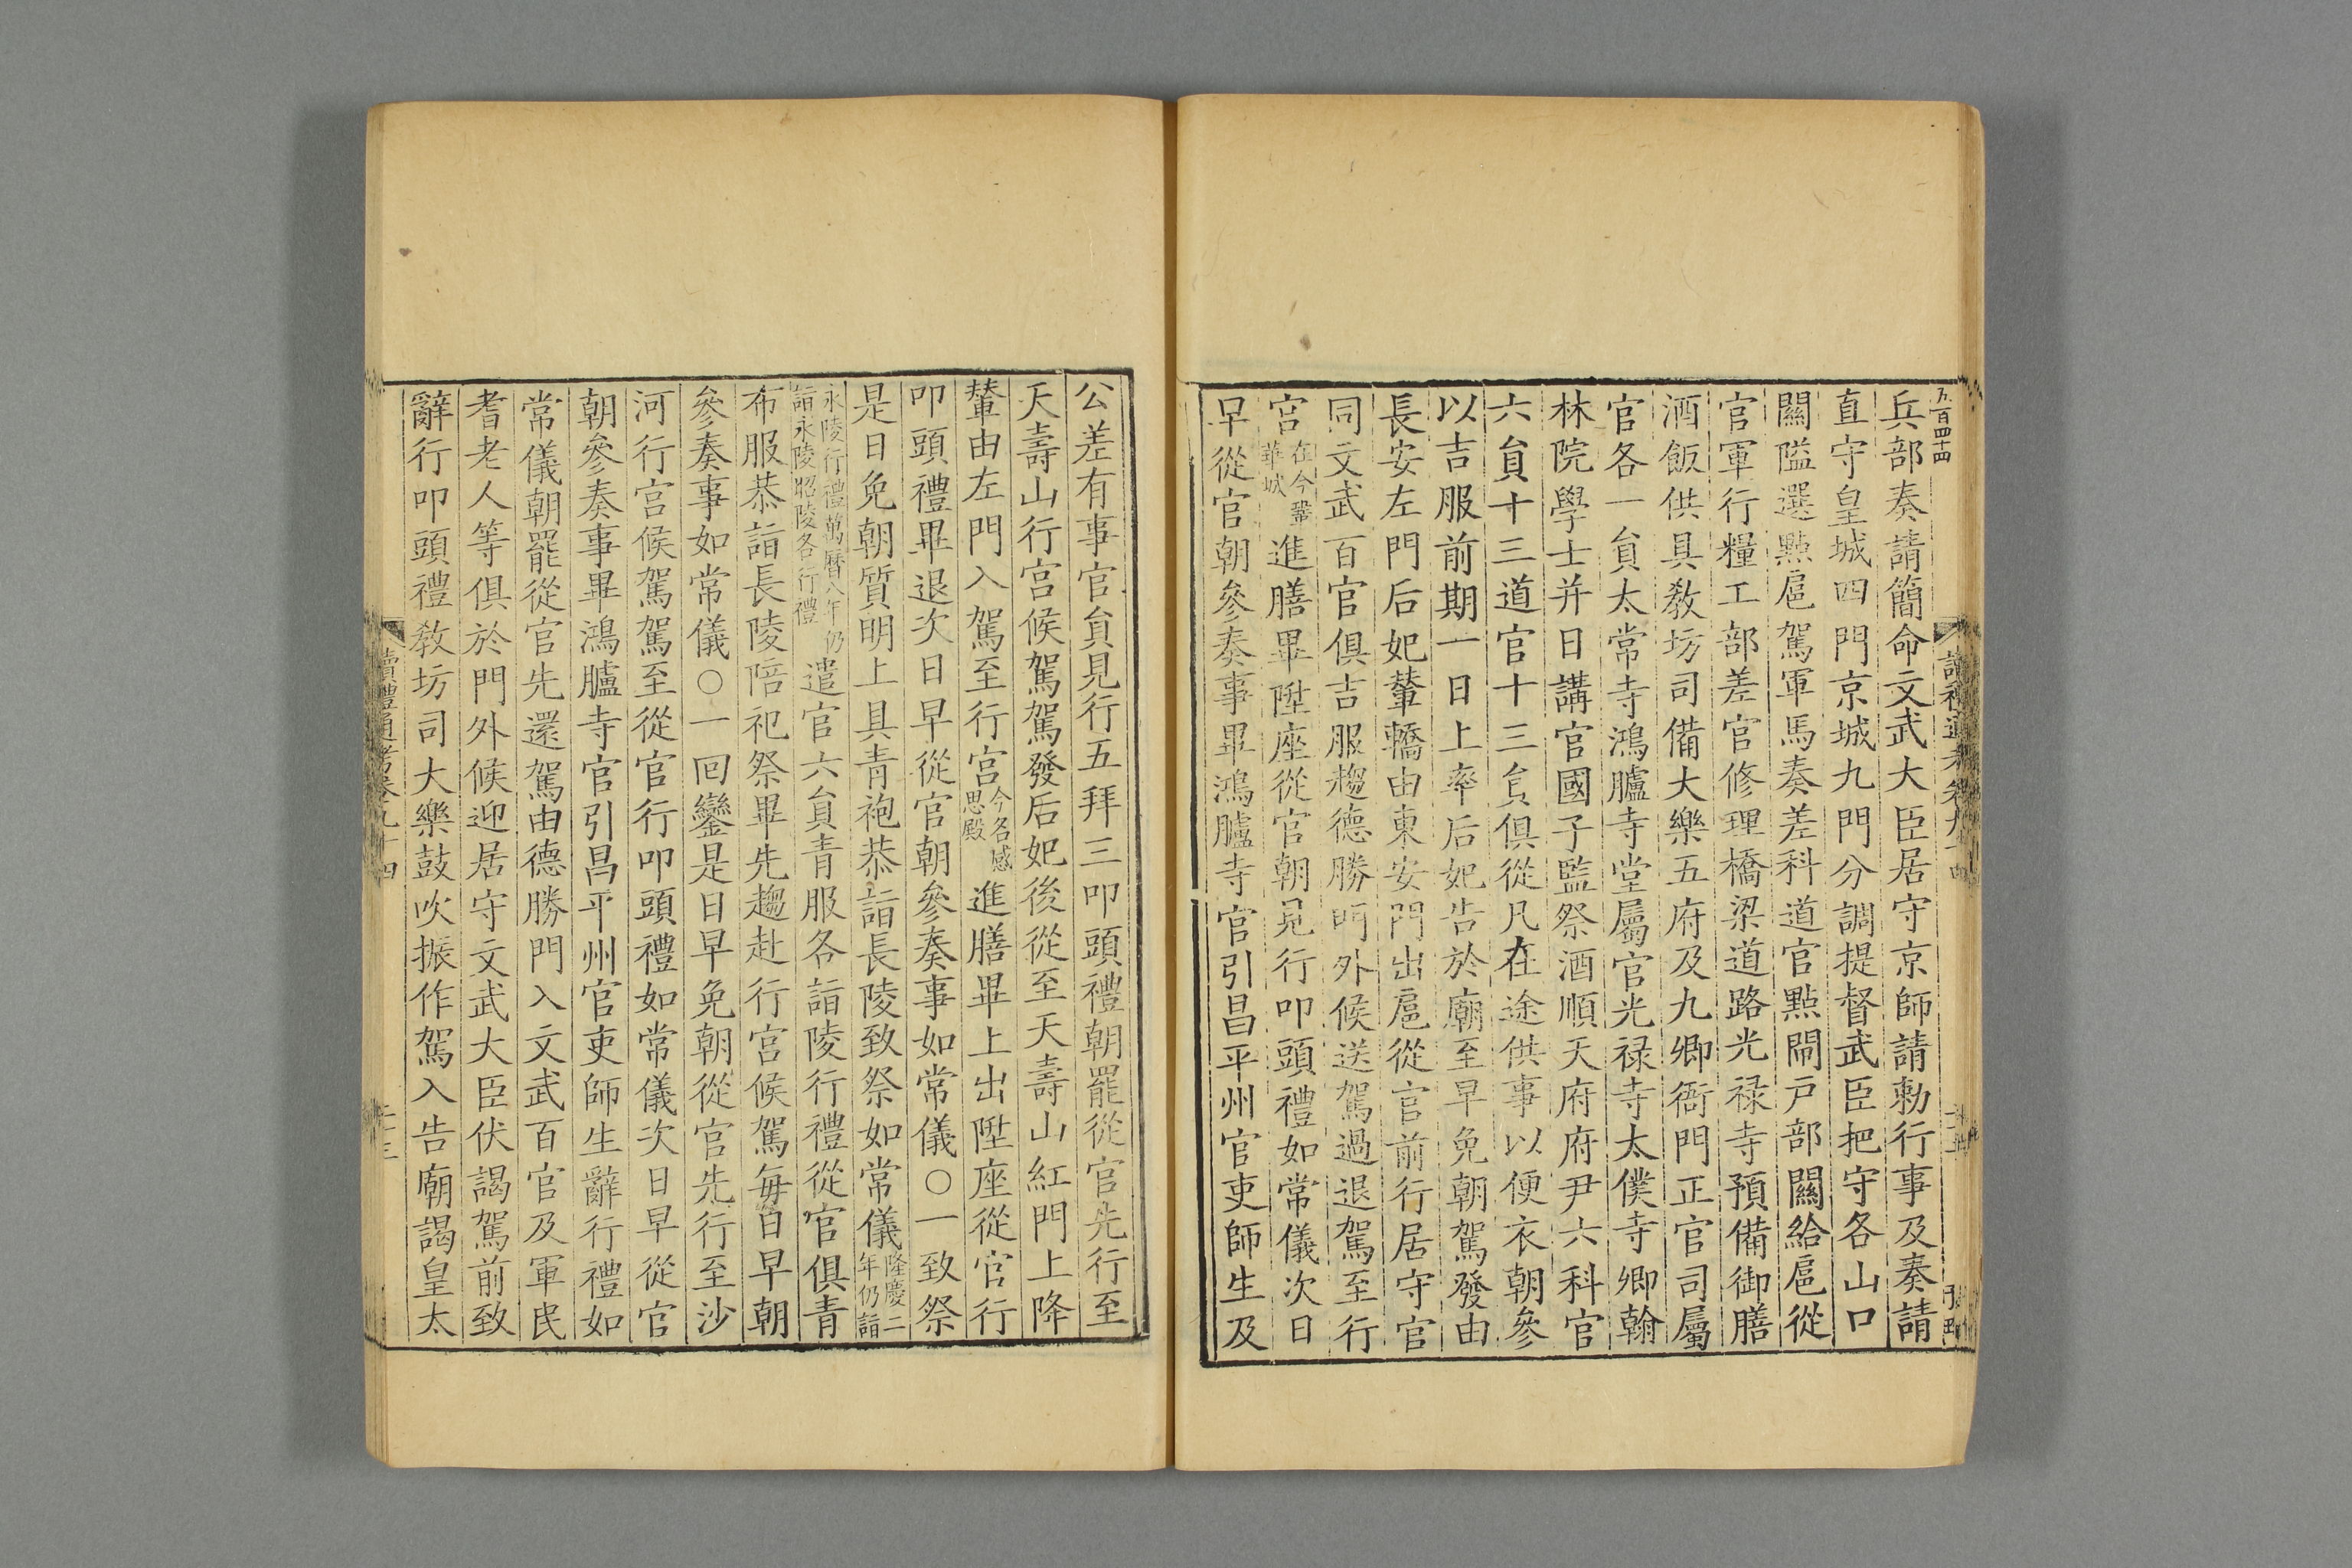 五百四十四
兵部奏請簡命文武大臣居守京師請勅行事及奏請
直守皇城四門京城九門分調提督武臣把守各山口
關隘選㸃扈駕軍馬奏差科道官㸃閘戸部關給扈從
官軍行糧工部差官修理橋梁道路光禄寺預備御膳
酒飯供具教坊司備大樂五府及九卿衙門正官司屬
官各一貟太常寺鴻臚寺堂屬官光禄寺太僕寺卿翰
林院學士并日講官國子監祭酒順天府府尹六科官
六貟十三道官十三貟俱從凡在途供事以便衣朝參
以吉服前期一日上率后妃告於廟至早免朝駕發由
長安左門后妃輦轎由東安門出扈從官前行居守官
同文武百官俱吉服趨德勝門外候送駕過退駕至行
宮在今鞏華城進膳畢陞座從官朝見行叩頭禮如常儀次日
早從官朝參奏事畢鴻臚寺官引昌平州官吏師生及
公差有事官貟見行五拜三叩頭禮朝罷從官先行至
天壽山行宮候駕駕發后妃後從至天壽山紅門上降
輦由左門入駕至行宮今名感思殿進膳畢上出陞座從官行
叩頭禮畢退次日早從官朝參奏事如常儀○一致祭
是日免朝質明上具青袍恭詣長陵致祭如常儀隆慶二年仍詣
永陵行禮萬曆八年仍詣永陵昭陵各行禮遣官六貟青服各詣陵行禮從官俱青
布服恭詣長陵陪祀祭畢先趨赴行宮候駕每日早朝
參奏事如常儀○一回鑾是日早免朝從官先行至沙
河行宮候駕駕至從官行叩頭禮如常儀次日早從官
朝參奏事畢鴻臚寺官引昌平州官吏師生辭行禮如
常儀朝罷從官先還駕由德勝門入文武百官及軍民
耆老人等俱於門外候迎居守文武大臣伏謁駕前致
辭行叩頭禮教坊司大樂鼓吹振作駕入告廟謁皇太
讀禮通考卷九十四